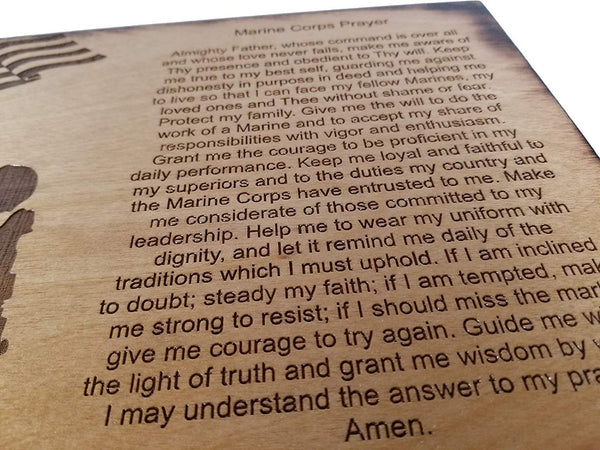 Marine Corps Prayer
Almighty Father, whose command is over all
and whose love never fails, make me aware of
Thy presence and obedient to Thy will. Keep
me true to my best self, guarding me against
dishonesty in purpose in deed and helping me
to live so that I can face my fellow Marines, my
loved ones and Thee without shame or fear.
Protect my family. Give me the will to do the
work of a Marine and to accept my share of
responsibilities with vigor and enthusiasm.
Grant me the courage to be proficient in my
daily performance. Keep me loyal and faithful to
my superiors and to the duties my country and
the Marine Corps have entrusted to me. Make
me considerate of those committed to my
leadership. Help me to wear my uniform with
dignity, and let it remind me daily of the
traditions which I must uphold. If I am inclined
to doubt; steady my faith; if I am tempted, make
me strong to resist; if I should miss the mark
give me courage to try again. Guide me
the light of truth and grant me wisdom by
I may understand the answer to my
Amen.